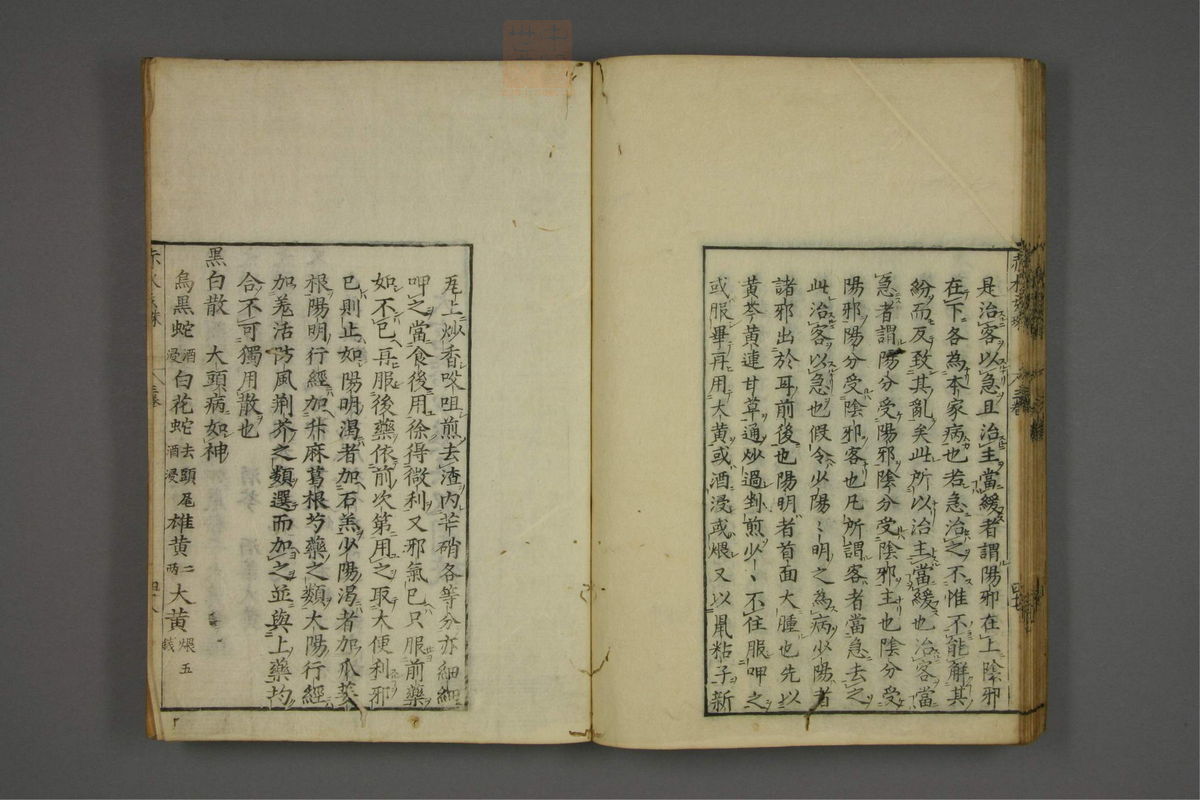 是治客以急且治主當緩者謂陽邪在上陰邪
在下各為本家病也若急治之不惟不能解其
紛而反致其亂矣此所以治主當緩也治客當
急者謂陽分受陽邪陰分受陰邪主也陰分受
陽邪陽分受陰邪客也凡所謂客者當急去之
此治客以急也假令少陽〻明之為病少陽者
諸邪出於耳前後也陽明者首面大腫也先以
黃芩黃連甘草通炒過剉煎少〻不住服呷之
或服畢再用大黃或酒浸或煨又以鼠粘子新
瓦上炒香㕮咀煎去渣內芒硝各等分亦細細
呷之當食後用徐得微利又邪氣已只服前藥
如不已再服後藥依前次第用之取大便利邪
已則止如陽明渴者加石羔少陽渴者加瓜蔞
根陽明行經加升麻葛根芍藥之類太陽行經
加羗活防風荊芥之類選而加之並與上藥均
合不可獨用散也
黑白散 大頭病如神
烏黑蛇酒浸白花蛇去頭尾酒浸雄黃二両大黃煨五錢